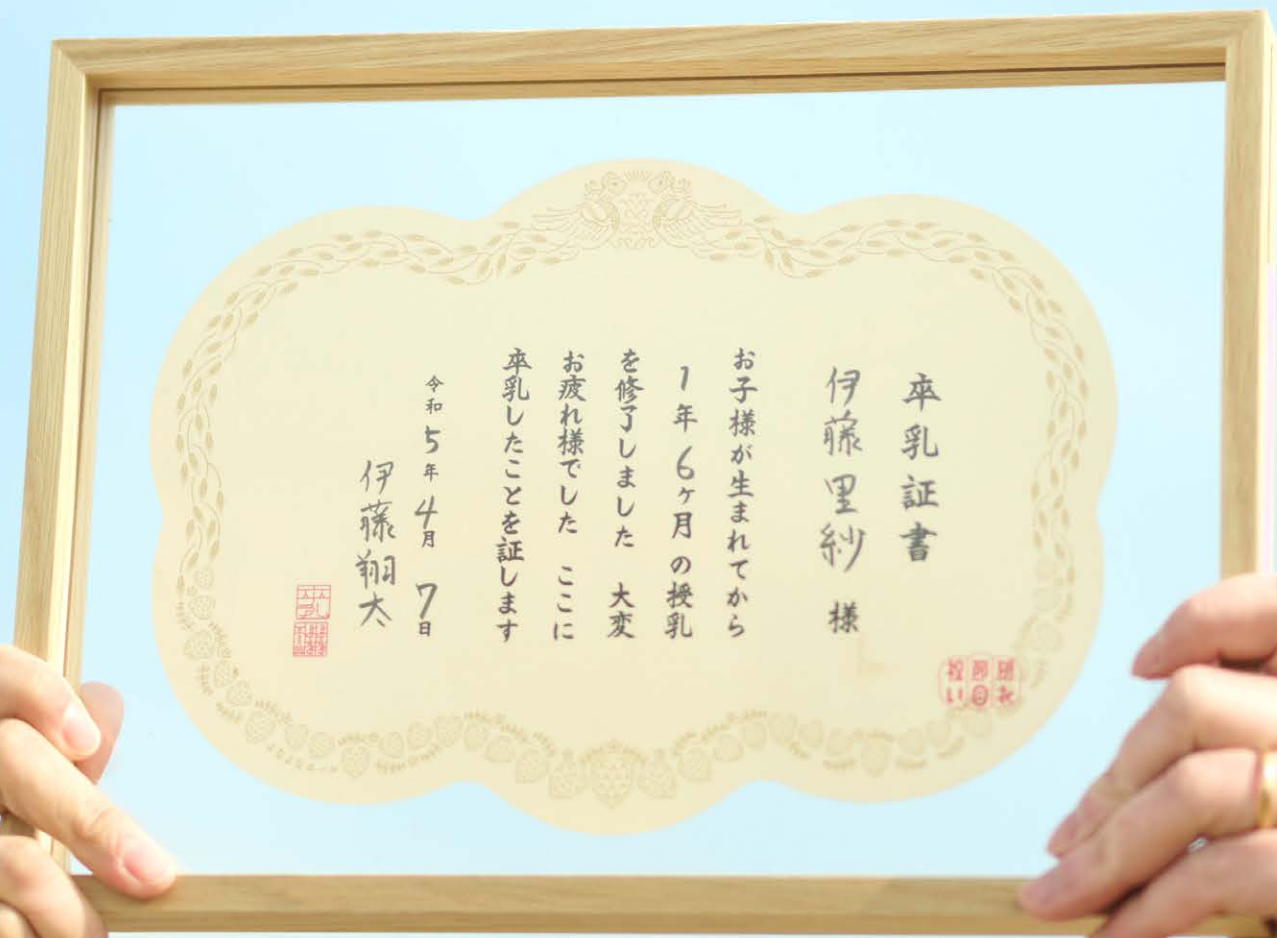 卒乳証書
伊藤里紗 様
お子様が生まれてから
1年6ヶ月の授乳
を修了しました 大変
お疲れ様でした ここに
卒乳したことを証します
令和5年4月7日
伊藤翔太